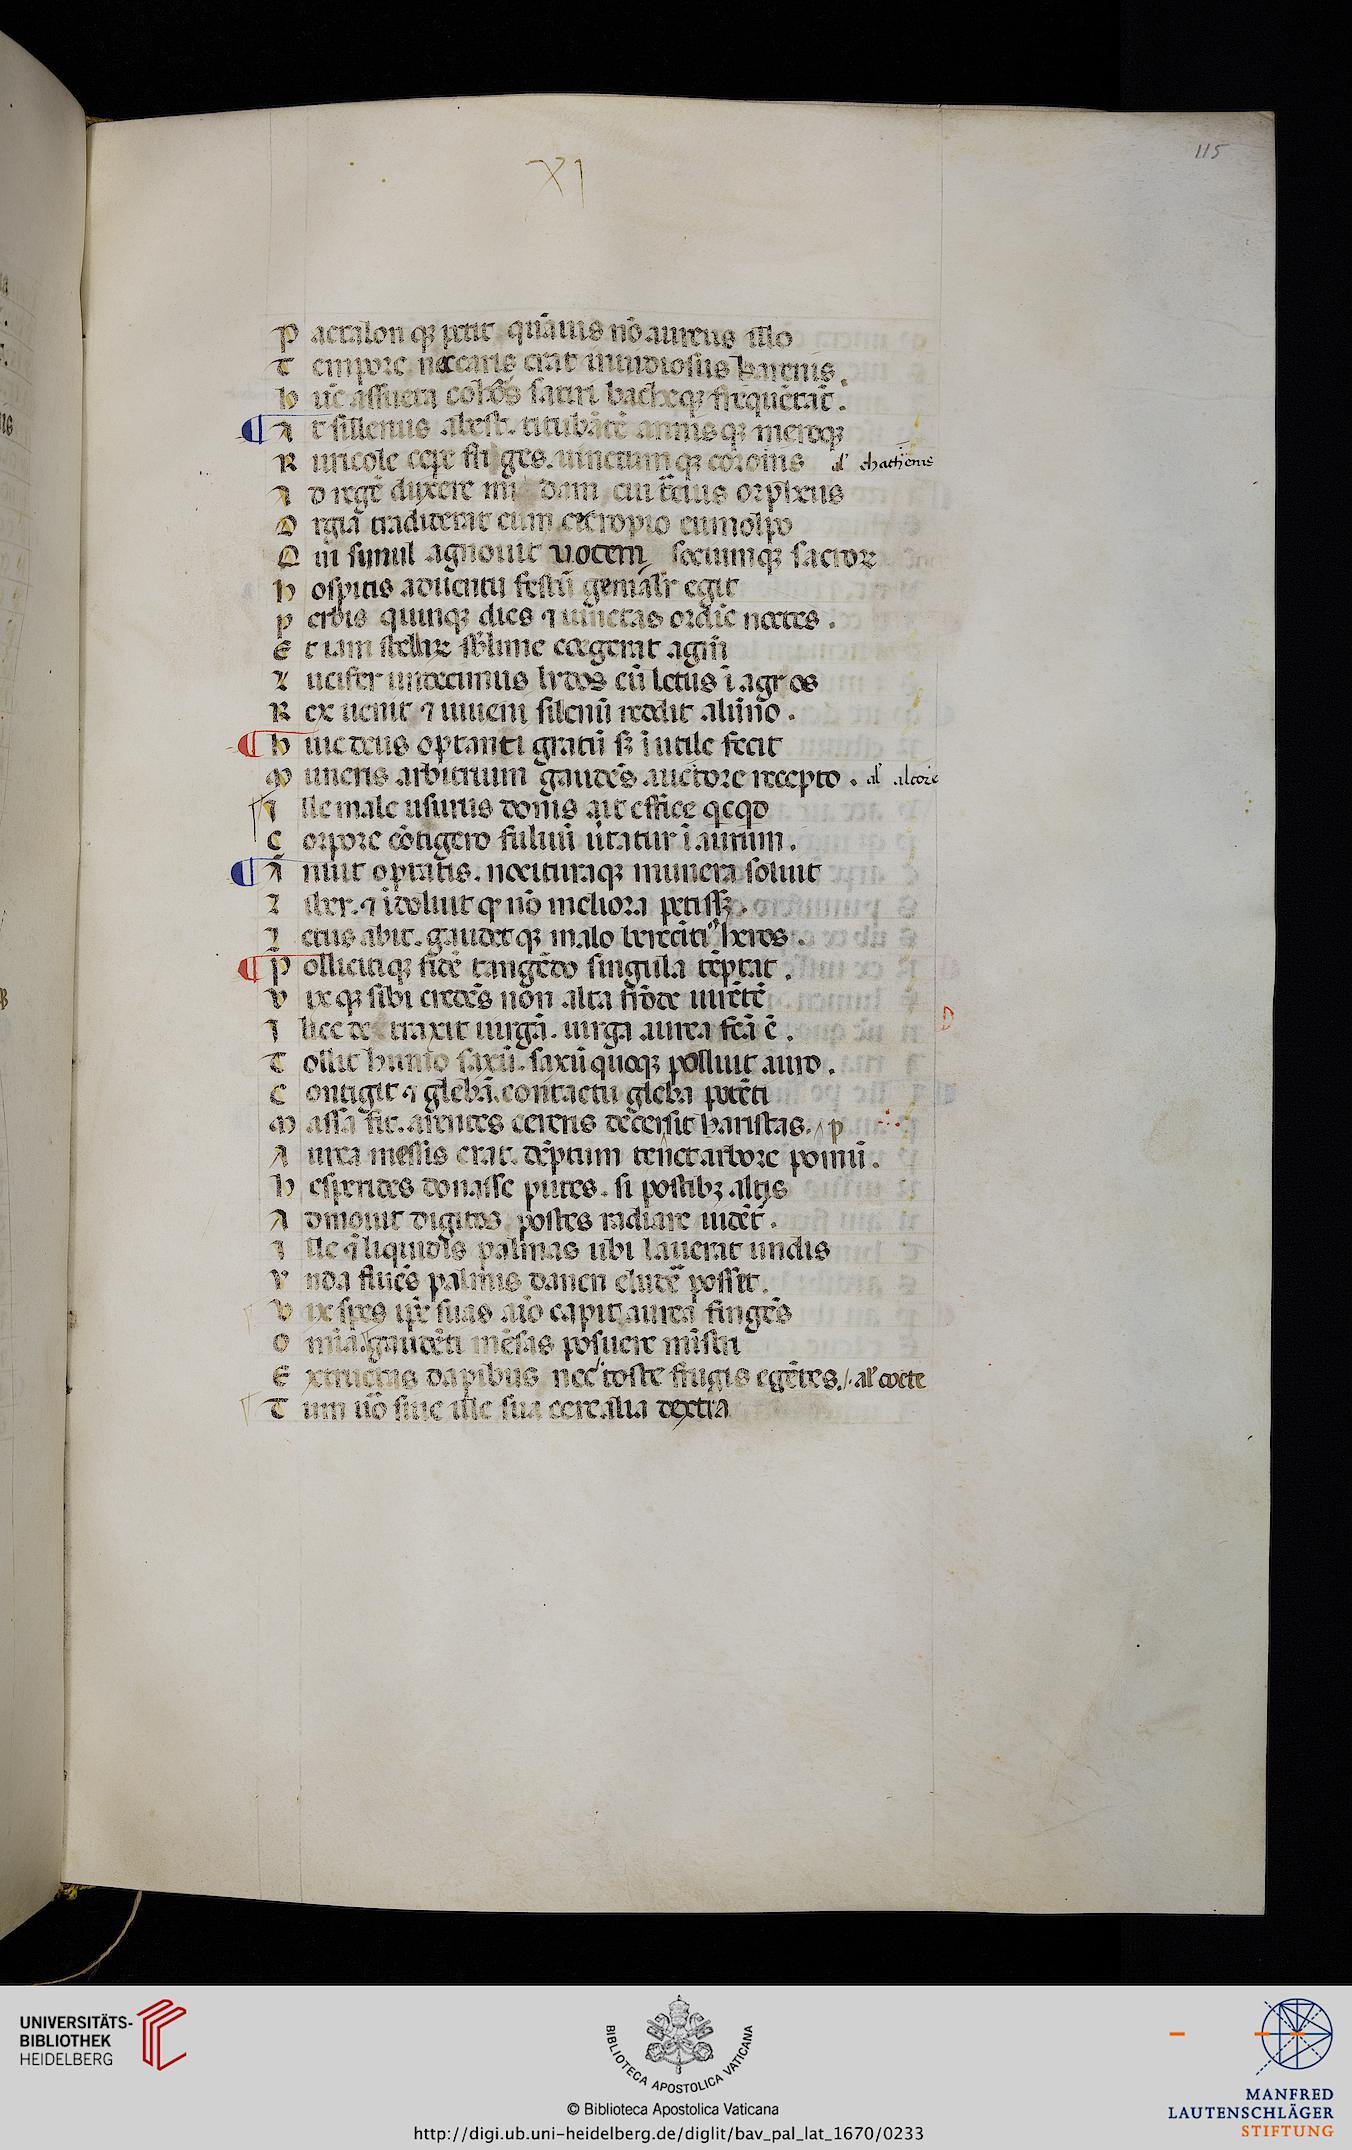 XI
115
P actalon qȝ petit quāuis nō aureus illo
T empore nec caris erat inuidiosus harenis.
h ūc assueta cohōs satiri bacheqȝ frequētāt.
A t sillenus abest. titubātē annisqȝ meroqȝ
R uricole cepe friges. uinctumqȝ coronis al' chathenis
A d regē duxere midam cui tracius orpheus
O rgia tradiderat cum cecropio eumolpo
Q ui simul agnouit uocem sociumqȝ sacroꝝ
h ospitis aduentu festū genialr egit
P erbis quinqȝ dies ⁊ iunctas ordīe noctes.
E t iam stellaꝝ sblime coegerat agm̄
L ucifer undecimus lidos cū letus ī agros
R ex uenit ⁊ iuueni silenū reddit alūno.
h uic deus optanti gratū sȝ īutile fecit
M uneris arbitrium gaudēs auctore recepto. al' altore
I lle male usurus donis ait effice qcqd
C orpore cōtigero fuluū ūtatur ī aurum.
A nnuit optatis. nocituraqȝ munera soluit
L iber. ⁊ īdoluit qr nō meliora petissȝ.
L etus abit. gaudetqȝ malo berecīti⁹ heros.
P ollicitiqȝ fidē tangēdo singula tēptat.
V ix qȝ sibi credēs non alta frōde uirētē
I lice detraxit uirgā. uirga aurea fcā ē.
T ollit humo saxū. saxū quoqȝ palluit auro.
C ontigit ⁊ glebā. contactu gleba potēti
M assa fit. arentes cereris decersit haristas. p
A urea messis erat. dēptum tenet arbore pomū.
h esperides donasse putes. si postibȝ altis
A dmouit digitos postes radiare uidēt̄.
I lle ⁊ liquidis palmas ubi lauerat undis
V nda fluēs palmis danen eludē posset.
V ix spes ip̄e suas aīo capit aurea fingēs
O mīa gaudēti mēsas posuere mīstri
E xtructas dapibus nec toste frugis egētes. al' cocte
T um ūo siue ille sua cerealia dextra
UNIVERSITÄTS-
BIBLIOTHEK
HEIDELBERG
BIBLIOTECA APOSTOLICA VATICANA
© Biblioteca Apostolica Vaticana
http://digi.ub.uni-heidelberg.de/diglit/bav_pal_lat_1670/0233
MANFRED
LAUTENSCHLÄGER
STIFTUNG